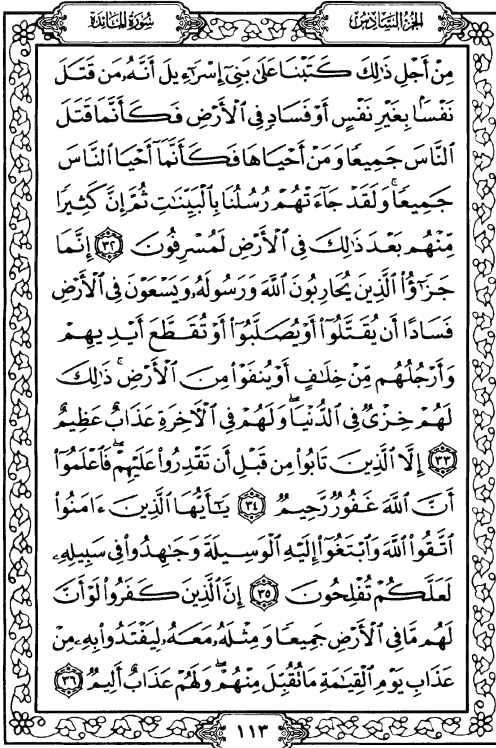 الجزء السادس
سورة المائدة
مِنْ أَجْلِ ذَٰلِكَ كَتَبْنَا عَلَىٰ بَنِىٓ إِسْرَٰٓءِيلَ أَنَّهُۥ مَن قَتَلَ
نَفْسًۢا بِغَيْرِ نَفْسٍ أَوْ فَسَادٍ فِى ٱلْأَرْضِ فَكَأَنَّمَا قَتَلَ
ٱلنَّاسَ جَمِيعًا وَمَنْ أَحْيَاهَا فَكَأَنَّمَآ أَحْيَا ٱلنَّاسَ
جَمِيعًا ۚ وَلَقَدْ جَآءَتْهُمْ رُسُلُنَا بِٱلْبَيِّنَٰتِ ثُمَّ إِنَّ كَثِيرًا
مِّنْهُم بَعْدَ ذَٰلِكَ فِى ٱلْأَرْضِ لَمُسْرِفُونَ ٣٢ إِنَّمَا
جَزَٰٓؤُا۟ ٱلَّذِينَ يُحَارِبُونَ ٱللَّهَ وَرَسُولَهُۥ وَيَسْعَوْنَ فِى ٱلْأَرْضِ
فَسَادًا أَن يُقَتَّلُوٓا۟ أَوْ يُصَلَّبُوٓا۟ أَوْ تُقَطَّعَ أَيْدِيهِمْ
وَأَرْجُلُهُم مِّنْ خِلَٰفٍ أَوْ يُنفَوْا۟ مِنَ ٱلْأَرْضِ ۚ ذَٰلِكَ
لَهُمْ خِزْىٌ فِى ٱلدُّنْيَا ۖ وَلَهُمْ فِى ٱلْءَاخِرَةِ عَذَابٌ عَظِيمٌ
٣٣ إِلَّا ٱلَّذِينَ تَابُوا۟ مِن قَبْلِ أَن تَقْدِرُوا۟ عَلَيْهِمْ ۖ فَٱعْلَمُوٓا۟
أَنَّ ٱللَّهَ غَفُورٌ رَّحِيمٌ ٣٤ يَٰٓأَيُّهَا ٱلَّذِينَ ءَامَنُوا۟
ٱتَّقُوا۟ ٱللَّهَ وَٱبْتَغُوٓا۟ إِلَيْهِ ٱلْوَسِيلَةَ وَجَٰهِدُوا۟ فِى سَبِيلِهِۦ
لَعَلَّكُمْ تُفْلِحُونَ ٣٥ إِنَّ ٱلَّذِينَ كَفَرُوا۟ لَوْ أَنَّ
لَهُم مَّا فِى ٱلْأَرْضِ جَمِيعًا وَمِثْلَهُۥ مَعَهُۥ لِيَفْتَدُوا۟ بِهِۦ مِنْ
عَذَابِ يَوْمِ ٱلْقِيَٰمَةِ مَا تُقُبِّلَ مِنْهُمْ ۖ وَلَهُمْ عَذَابٌ أَلِيمٌ ٣٦
١١٣